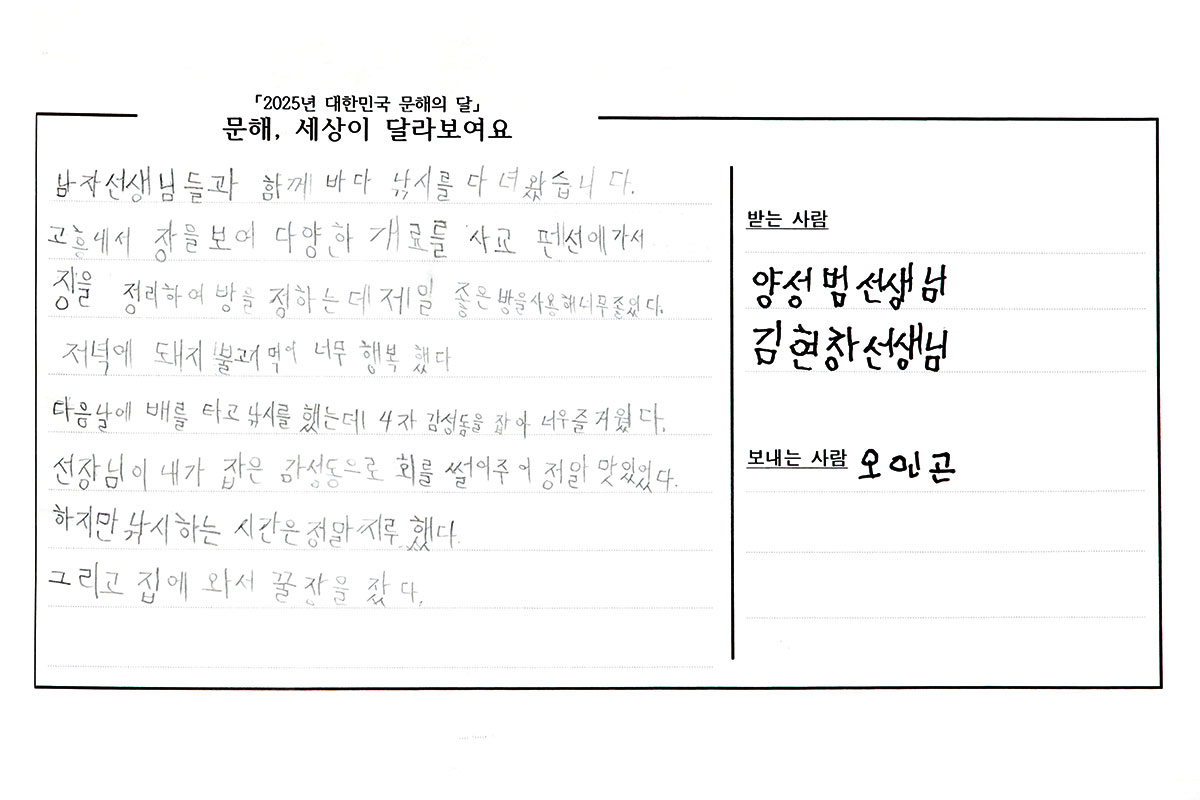 「2025년 대한민국 문해의 달」
문해, 세상이 달라보여요
남자선생님들과 함께 바다 낚시를 다녀왔습니다.
고흥에서 장을보여 다양한 개료를 사고 펜션에가서
짐을 정리하여 방을 정하는데 제일 좋은 방을사용해너무좋았다.
저녁에 돼지불고기 먹어 너무 행복 했다
다음날에 배를 타고 낚시를 했는데 4자 감성돔을 잡아 너무즐거웠다.
선장님이 내가 잡은 감성동으로 회를 썰어주어 정말 맛있었다.
하지만 낚시하는 시간은 정말 지루 했다.
그리고 집에 와서 꿀잠을 잤다.
받는 사람
양성범선생님
김현창선생님
보내는 사람 오민곤